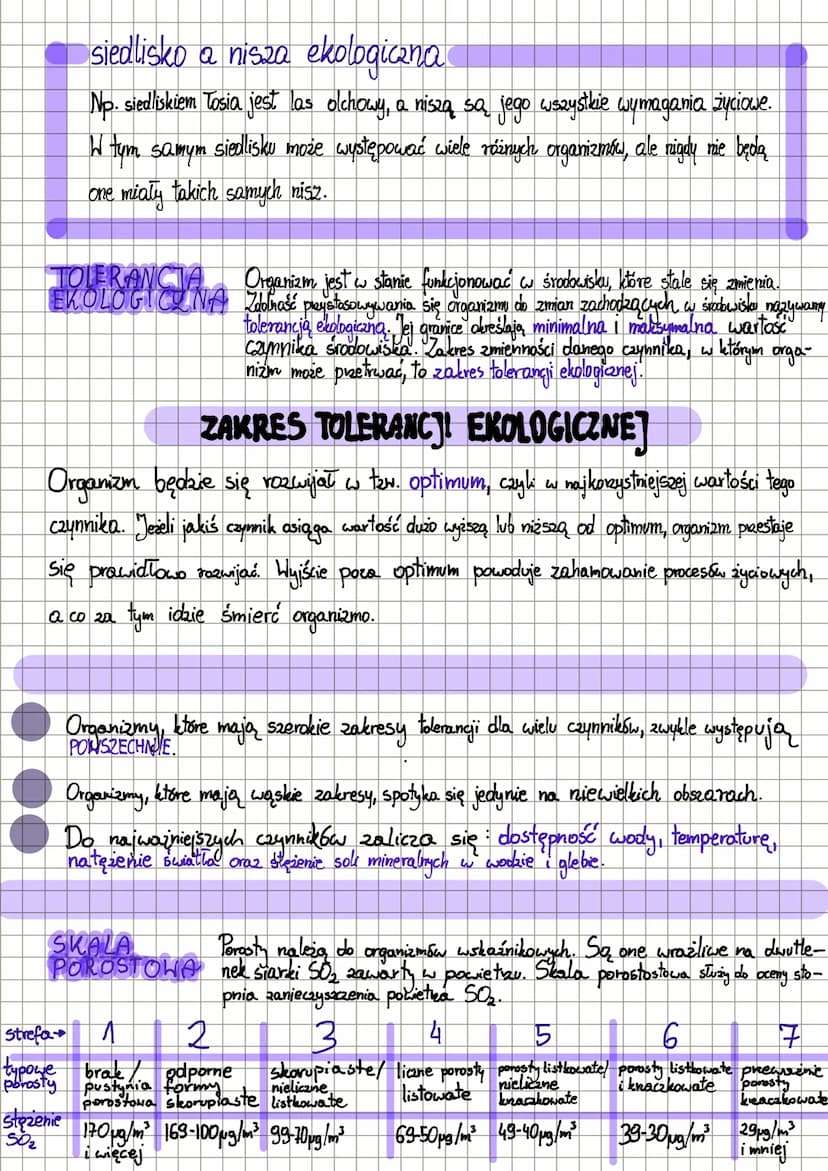 siedlisko a nisza ekologiczna
Np. siedliskiem Tosia jest las olchowy, a niszą są jego wszystkie wymagania życiowe.
W tym samym siedlisku może występować wiele różnych organizmów, ale nigdy nie będą
one miały takich samych nisz.
TOLERANCJA
EKOLOGICZNA
Organizm jest w stanie funkcjonować w środowisku, które stale się zmienia.
Zdolność przystosowywania się organizmu do zmian zachodzących w środowisku nazywamy
tolerancją ekologiczną. Jej granice określają minimalna i maksymalna wartość
czynnika środowiska. Zakres zmienności danego czynnika, w którym orga-
nizm może przetrwać, to zakres tolerancji ekologicznej.
ZAKRES TOLERANCJI EKOLOGICZNEJ
Organizm będzie się rozwijał w tzw. optimum, czyli w najkorzystniejszej wartości tego
czynnika. Jeżeli jakiś czynnik osiąga wartość dużo wyższą lub niższą od optimum, organizm przestaje
się prawidłowo rozwijać. Wyjście poza optimum powoduje zahamowanie procesów życiowych,
a co za tym idzie śmierć organizmo.
Organizmy, które mają szerokie zakresy tolerancji dla wielu czynników, zwykle występują
POWSZECHNIE.
Organizmy, które mają wąskie zakresy, spotyka się jedynie na niewielkich obszarach.
Do najważniejszych czynników zalicza się: dostępność wody, temperaturę,
natężenie światła oraz stężenie soli mineralnych w wodzie i glebie.
SKALA
POROSTOWA
Porosty należą do organizmów wskaźnikowych. Są one wrażliwe na dwutle-
nek siarki SO₂ zawarty w powietrzu. Skala porostostowa służy do oceny sto-
pnia zanieczyszczenia powietrza SO₂.
strefa→ 1 2 3 4 5 6 7
typowe
porosty
brak/
pustynia
porostowa
odporne
formy
skorupiaste
skorupiaste/
nieliczne
listkowate
liczne porosty
listowate
porosty listkowate/
nieliczne
krzaczkowate
porosty listkowate
i krzaczkowate
przeważnie
porosty
krzaczkowate
stężenie
SO₂
170µg/m³
i więcej
169-100µg/m³
99-70µg/m³
69-50µg/m³
49-40µg/m³
39-30µg/m³
29µg/m³
i mniej